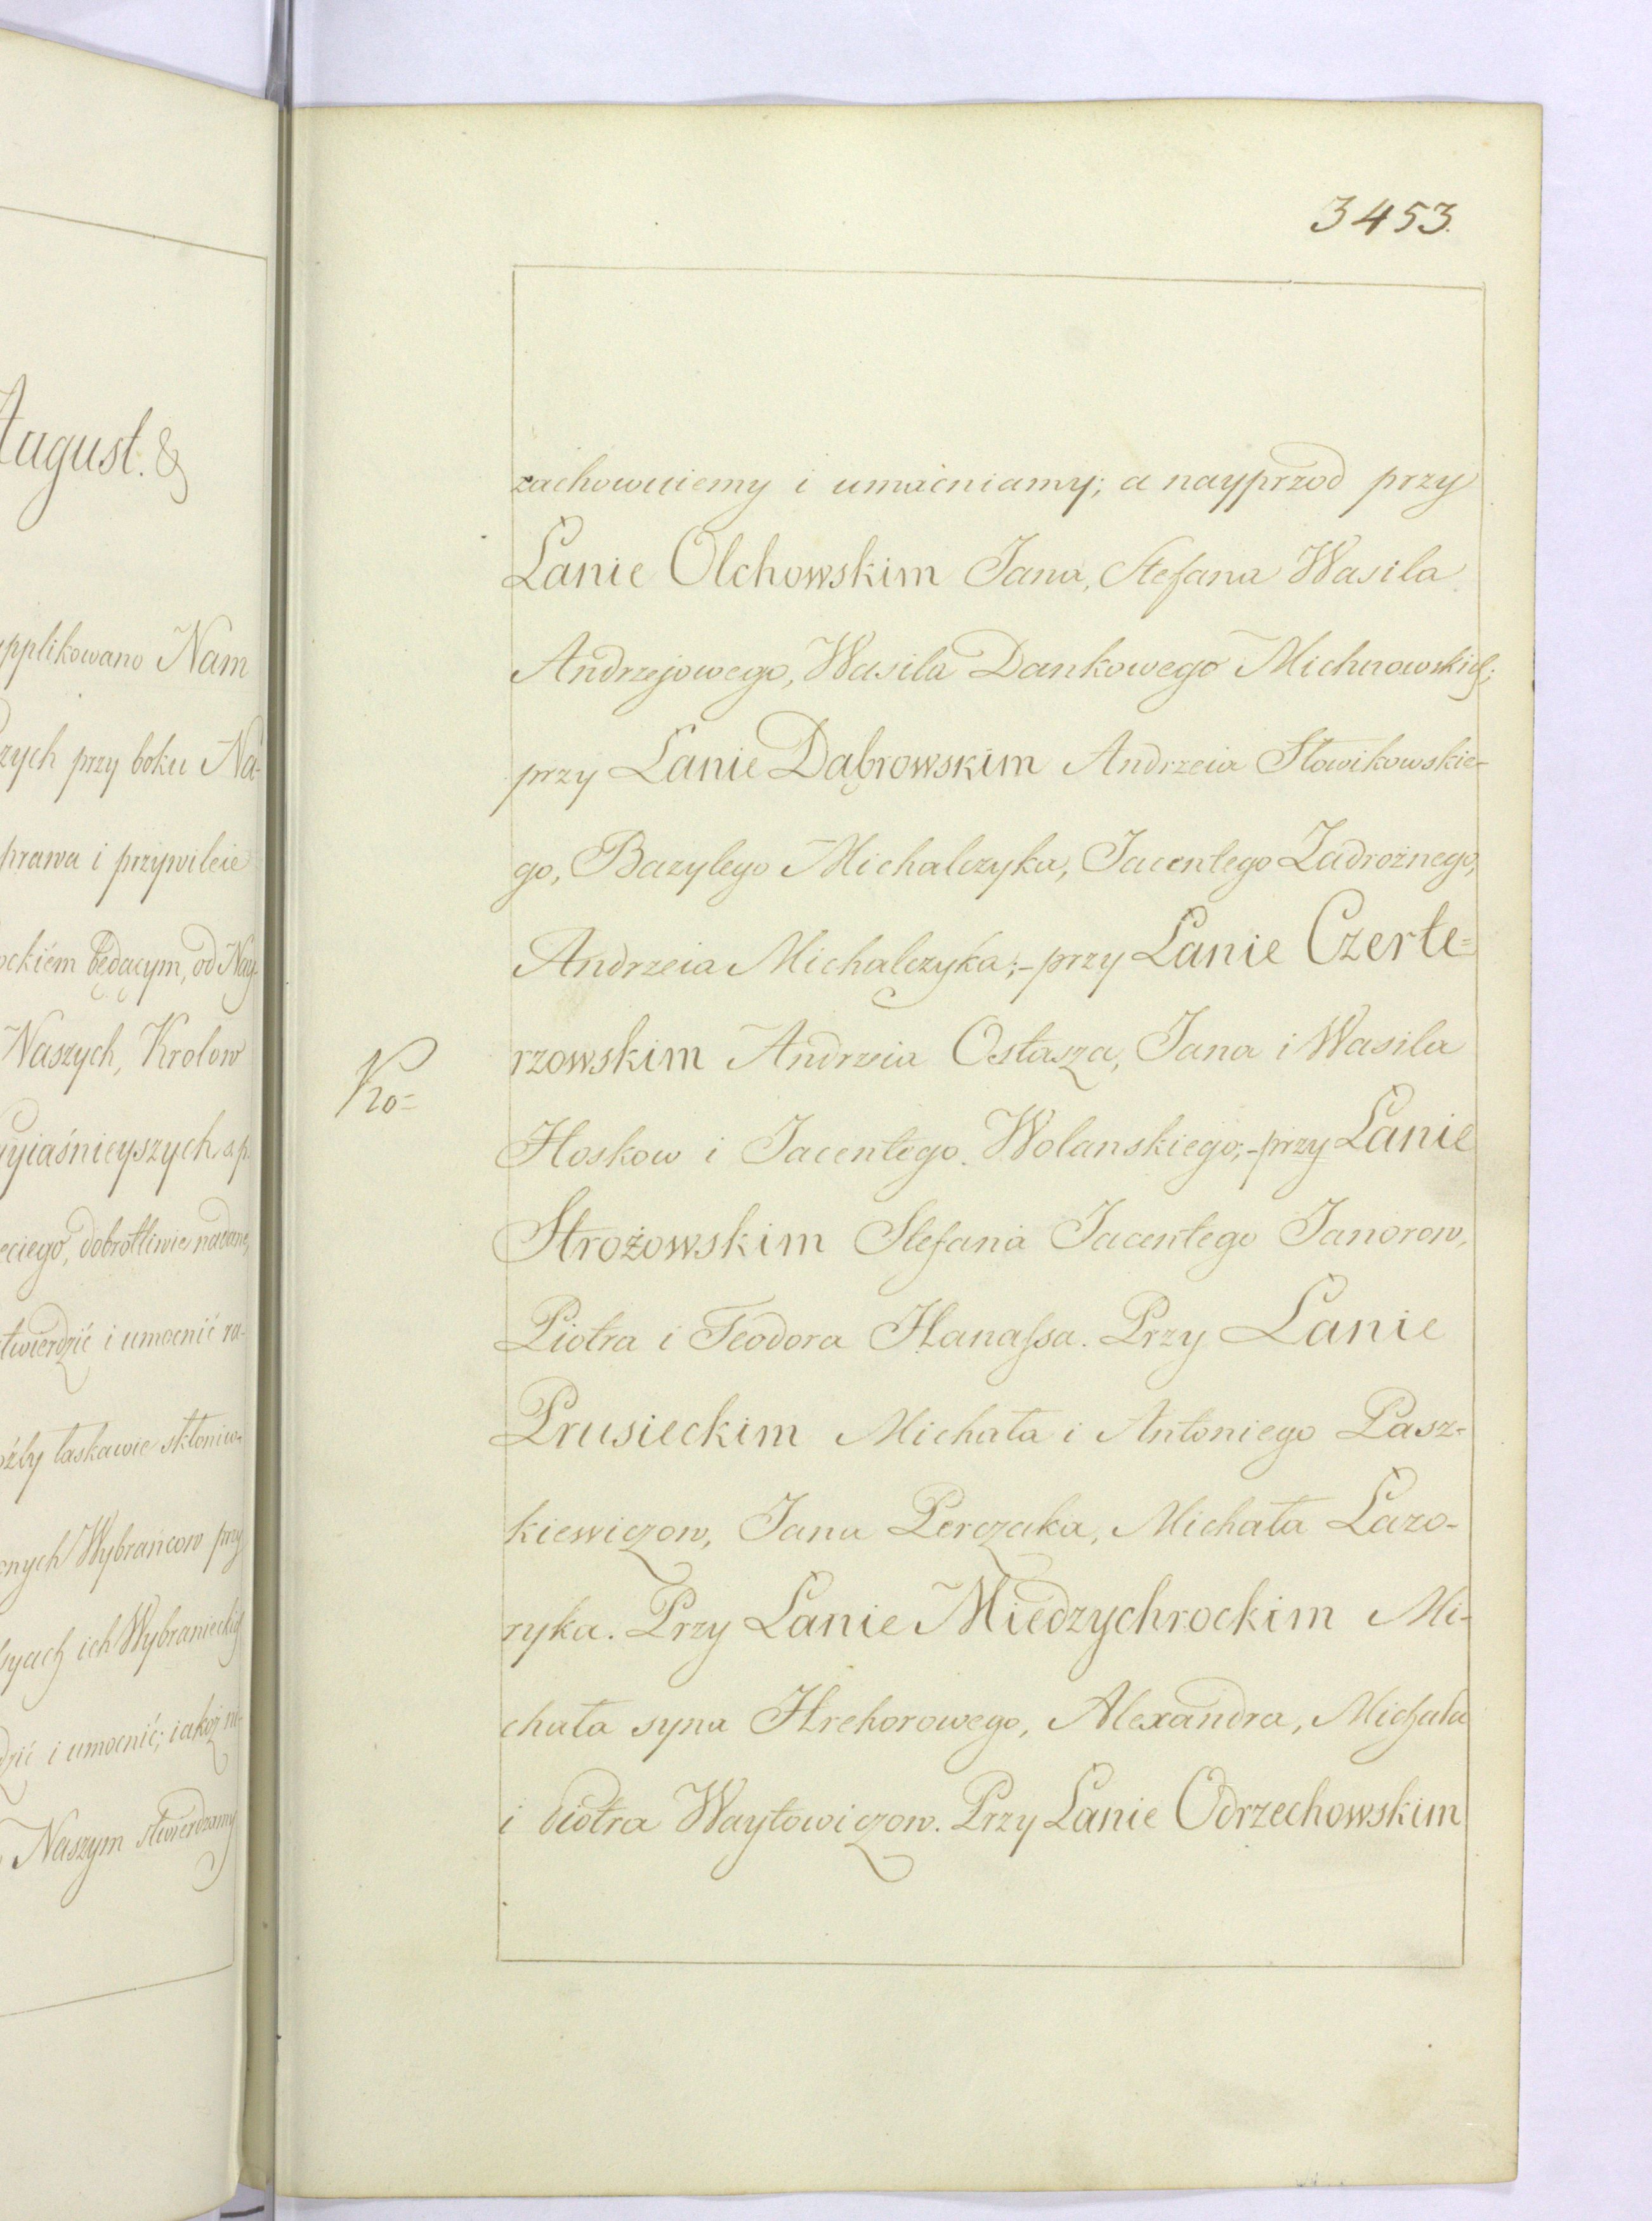 August. &
upplikowano Nam
zych przy boku Na-
prawa i przywileie
ockiém będącym, od Nay-
Naszych, Krolow
yiaśnieyszych s.p.
eciego, dobrotliwie nadane,
twierdzić i umocnić ra-
oźby łaskawie skłoniw-
cnych Wybrańcow przy
ich Wybranieckich
dzić i umocnić; iakoż ni-
Naszym stwierdzamy
3453.
zachowuiemy i umacniamy; a nayprzod przy
Lanie Olchowskim Jana, Stefana Wasila
Andrzejowego, Wasila Dankowego Michnowskich;
przy Lanie Dąbrowskim Andrzeia Słowikowskie-
go, Bazylego Michalczyka, Jacentego Zadrożnego,
Andrzeia Michalczyka;- przy Lanie Czerte=
rzowskim Andrzeia Ostasza, Jana i Wasila
Ko=
Hoskow i Jacentego Wolanskiego;- przy Lanie
Strożowskim Stefana Jacentego Janorow,
Piotra i Teodora Hanaſsa. Przy Lanie
Prusieckim Michała i Antoniego Pasz-
kiewiczow, Jana Perczaka, Michała Lazo-
ryka. Przy Lanie Miedzychrockim Mi-
chała syna Hrehorowego, Alexandra, Michała
i Piotra Waytowiczow. Przy Lanie Odrzechowskim